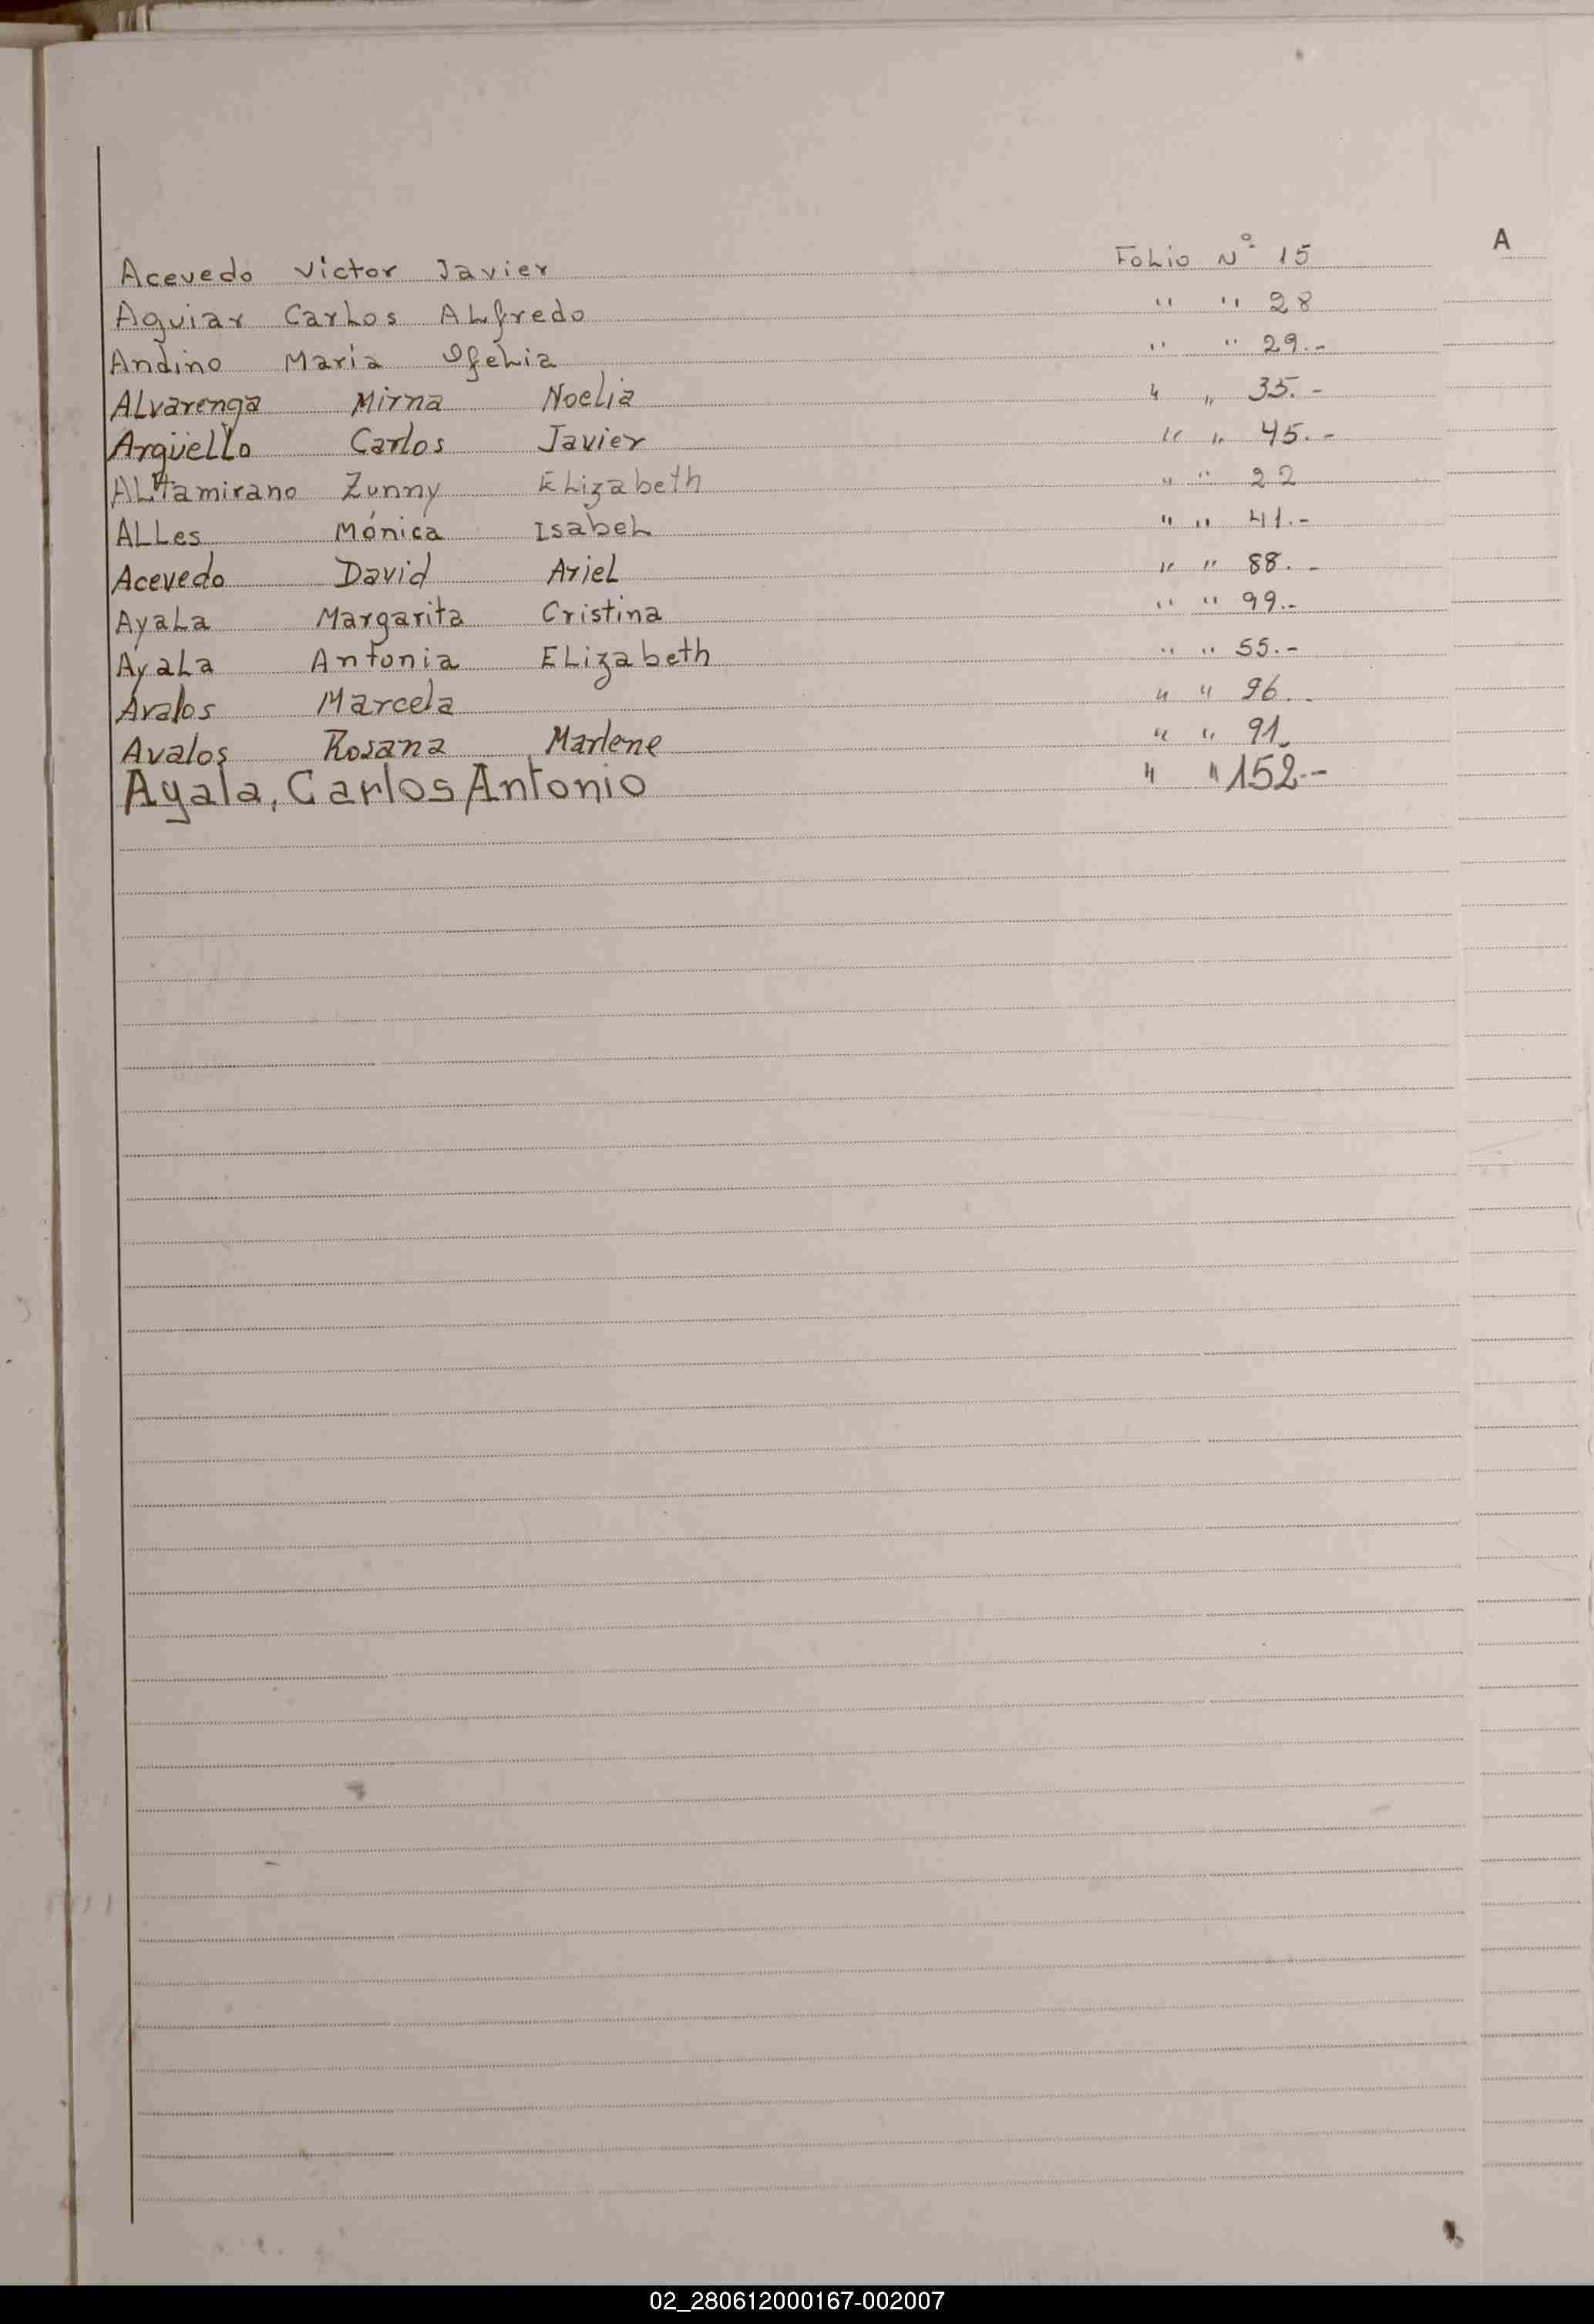 A
Acevedo Victor Javier Folio Nº 15
Aguiar Carlos Alfredo " " 28
Andino María Ofelia " " 29.-
Alvarenga Mirna Noelia " " 35.-
Argüello Carlos Javier " " 45.-
Altamirano Zunny Elizabeth " " 22
Alles Mónica Isabel " " 41.-
Acevedo David Ariel " " 88.-
Ayala Margarita Cristina " " 99.-
Ayala Antonia Elizabeth " " 55.-
Avalos Marcela " " 96.-
Avalos Rosana Marlene " " 91.
Ayala, Carlos Antonio " " 152.-
02_280612000167-002007